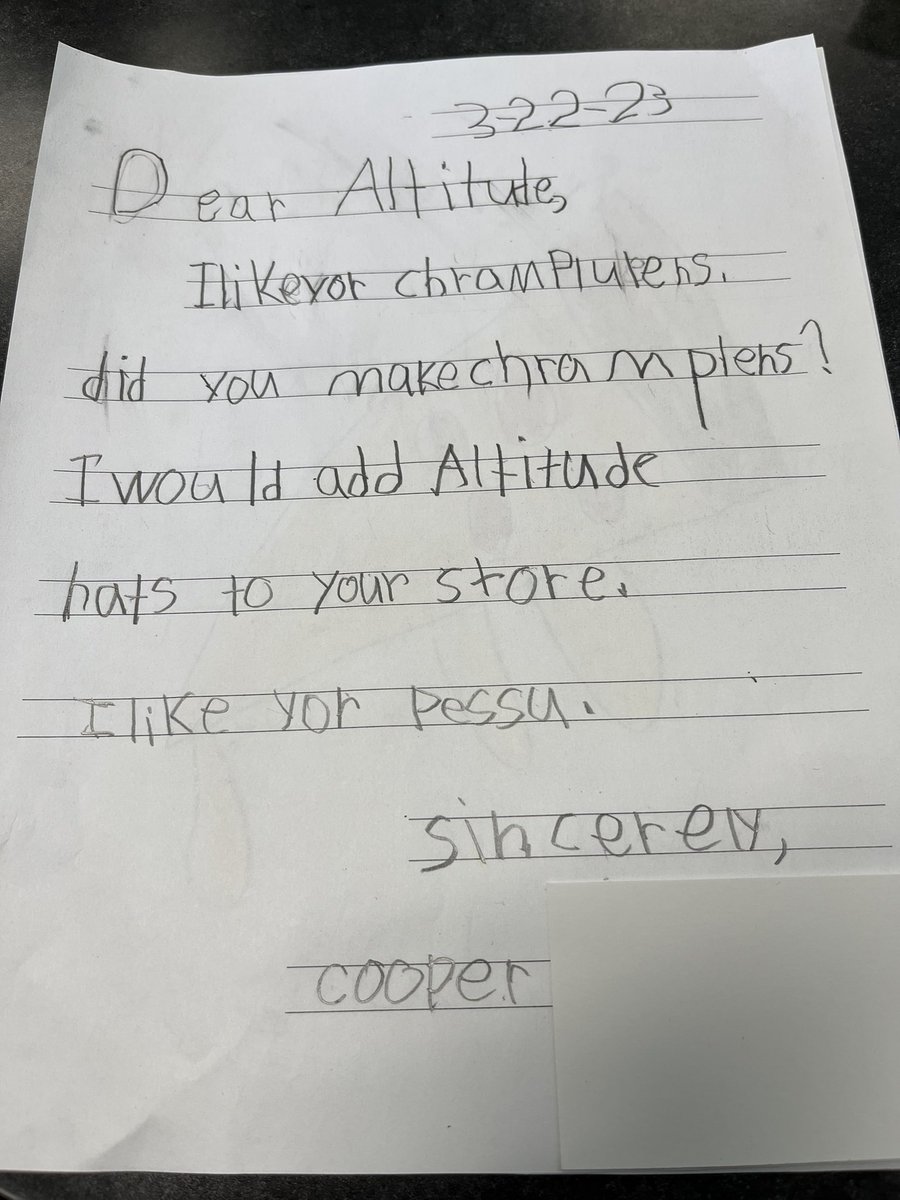 3-22-23
Dear Altitude,
I like yor chramplukens.
did you make chramplens?
I would add Altitude
hats to your store.
I like yor pessu.
sincerely,
cooper